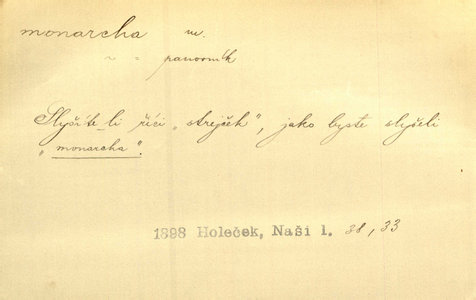 monarcha m.
~ = panovník
Slyšíte-li říci „strejček", jako byste slyšeli
„monarcha".
1898 Holeček, Naši 1. 38, 33